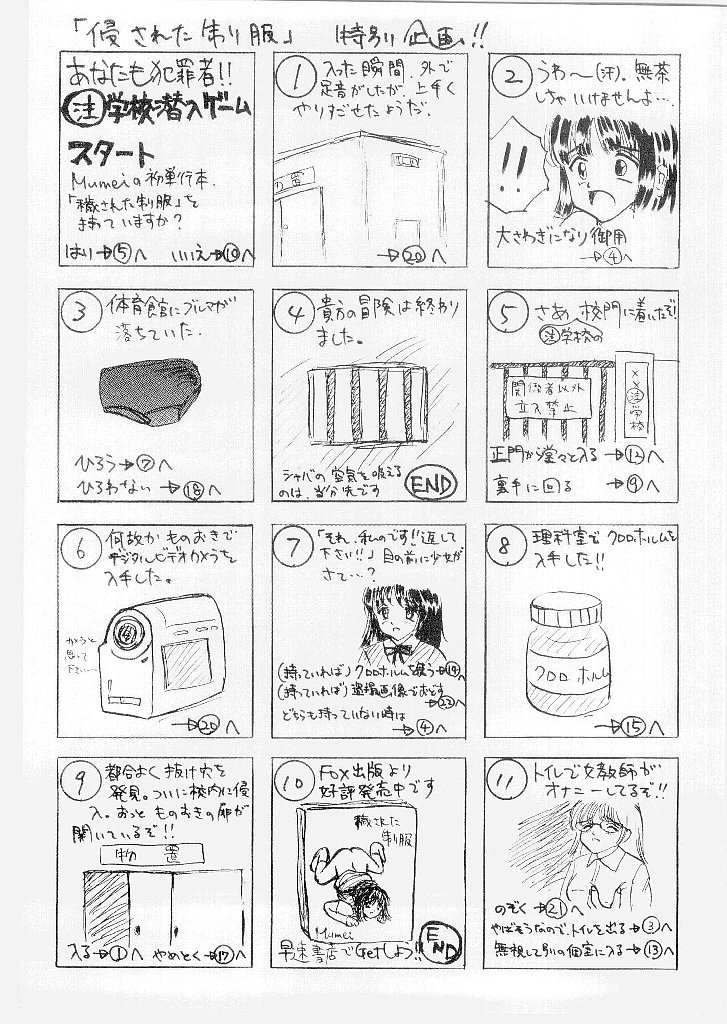 「侵された制り服」 特別企画!!
あなたも犯罪者!!
注学校潜入ゲーム
スタート
Mumeiの初単行本、
「穢された制服」を
持っていますか?
はい→⑤へ いいえ→⑩へ
① 入った瞬間、外で
足音がしたが、上手く
やりすごせたようだ。
物置
→⑳へ
② うわ〜(汗)。無茶
しちゃいけませんよ…。
!!
大さわぎになり御用
→④へ
③ 体育館にブルマが
落ちていた。
ひろう→⑦へ
ひろわない→⑱へ
④ 貴方の冒険は終わり
ました。
シャバの空気を吸える
のは、当分先です
END
⑤ さあ、校門に着いたぞ!
注学校の
関係者以外
立入禁止
××注学校
正門から堂々と入る→⑫へ
裏手に回る→⑨へ
⑥ 何故かものおきで
デジタルビデオカメラを
入手した。
カメラと
思って
下さい…
→⑳へ
⑦ 「それ、私のです!!返して
下さい!!」目の前に少女が
さて…?
(持っていれば)クロロホルムを使う→⑭へ
(持っていれば)盗撮画像でおどす
→㉓へ
どちらも持っていない時は
→④へ
⑧ 理科室でクロロホルムを
入手した!!
クロロホルム
→⑮へ
⑨ 都合よく抜け穴を
発見。ついに校内に侵
入。おっとものおきの扉が
開いているぞ!!
物置
入る→①へ やめとく→⑰へ
⑩ Fox出版より
好評発売中です
穢された
制服
Mumei
早速書店でGetしよう!!
END
⑪ トイレで女教師が
オナニーしてるぞ!!
のぞく→㉑へ
やばそうなので、トイレを出る→③へ
無視して別の個室に入る→⑬へ